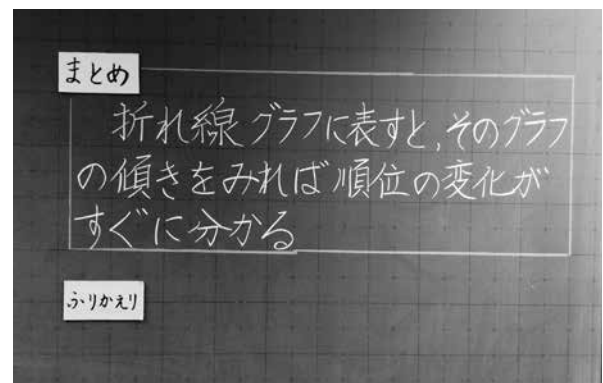 まとめ
折れ線グラフに表すと,そのグラフ
の傾きをみれば順位の変化が
すぐに分かる
ふりかえり